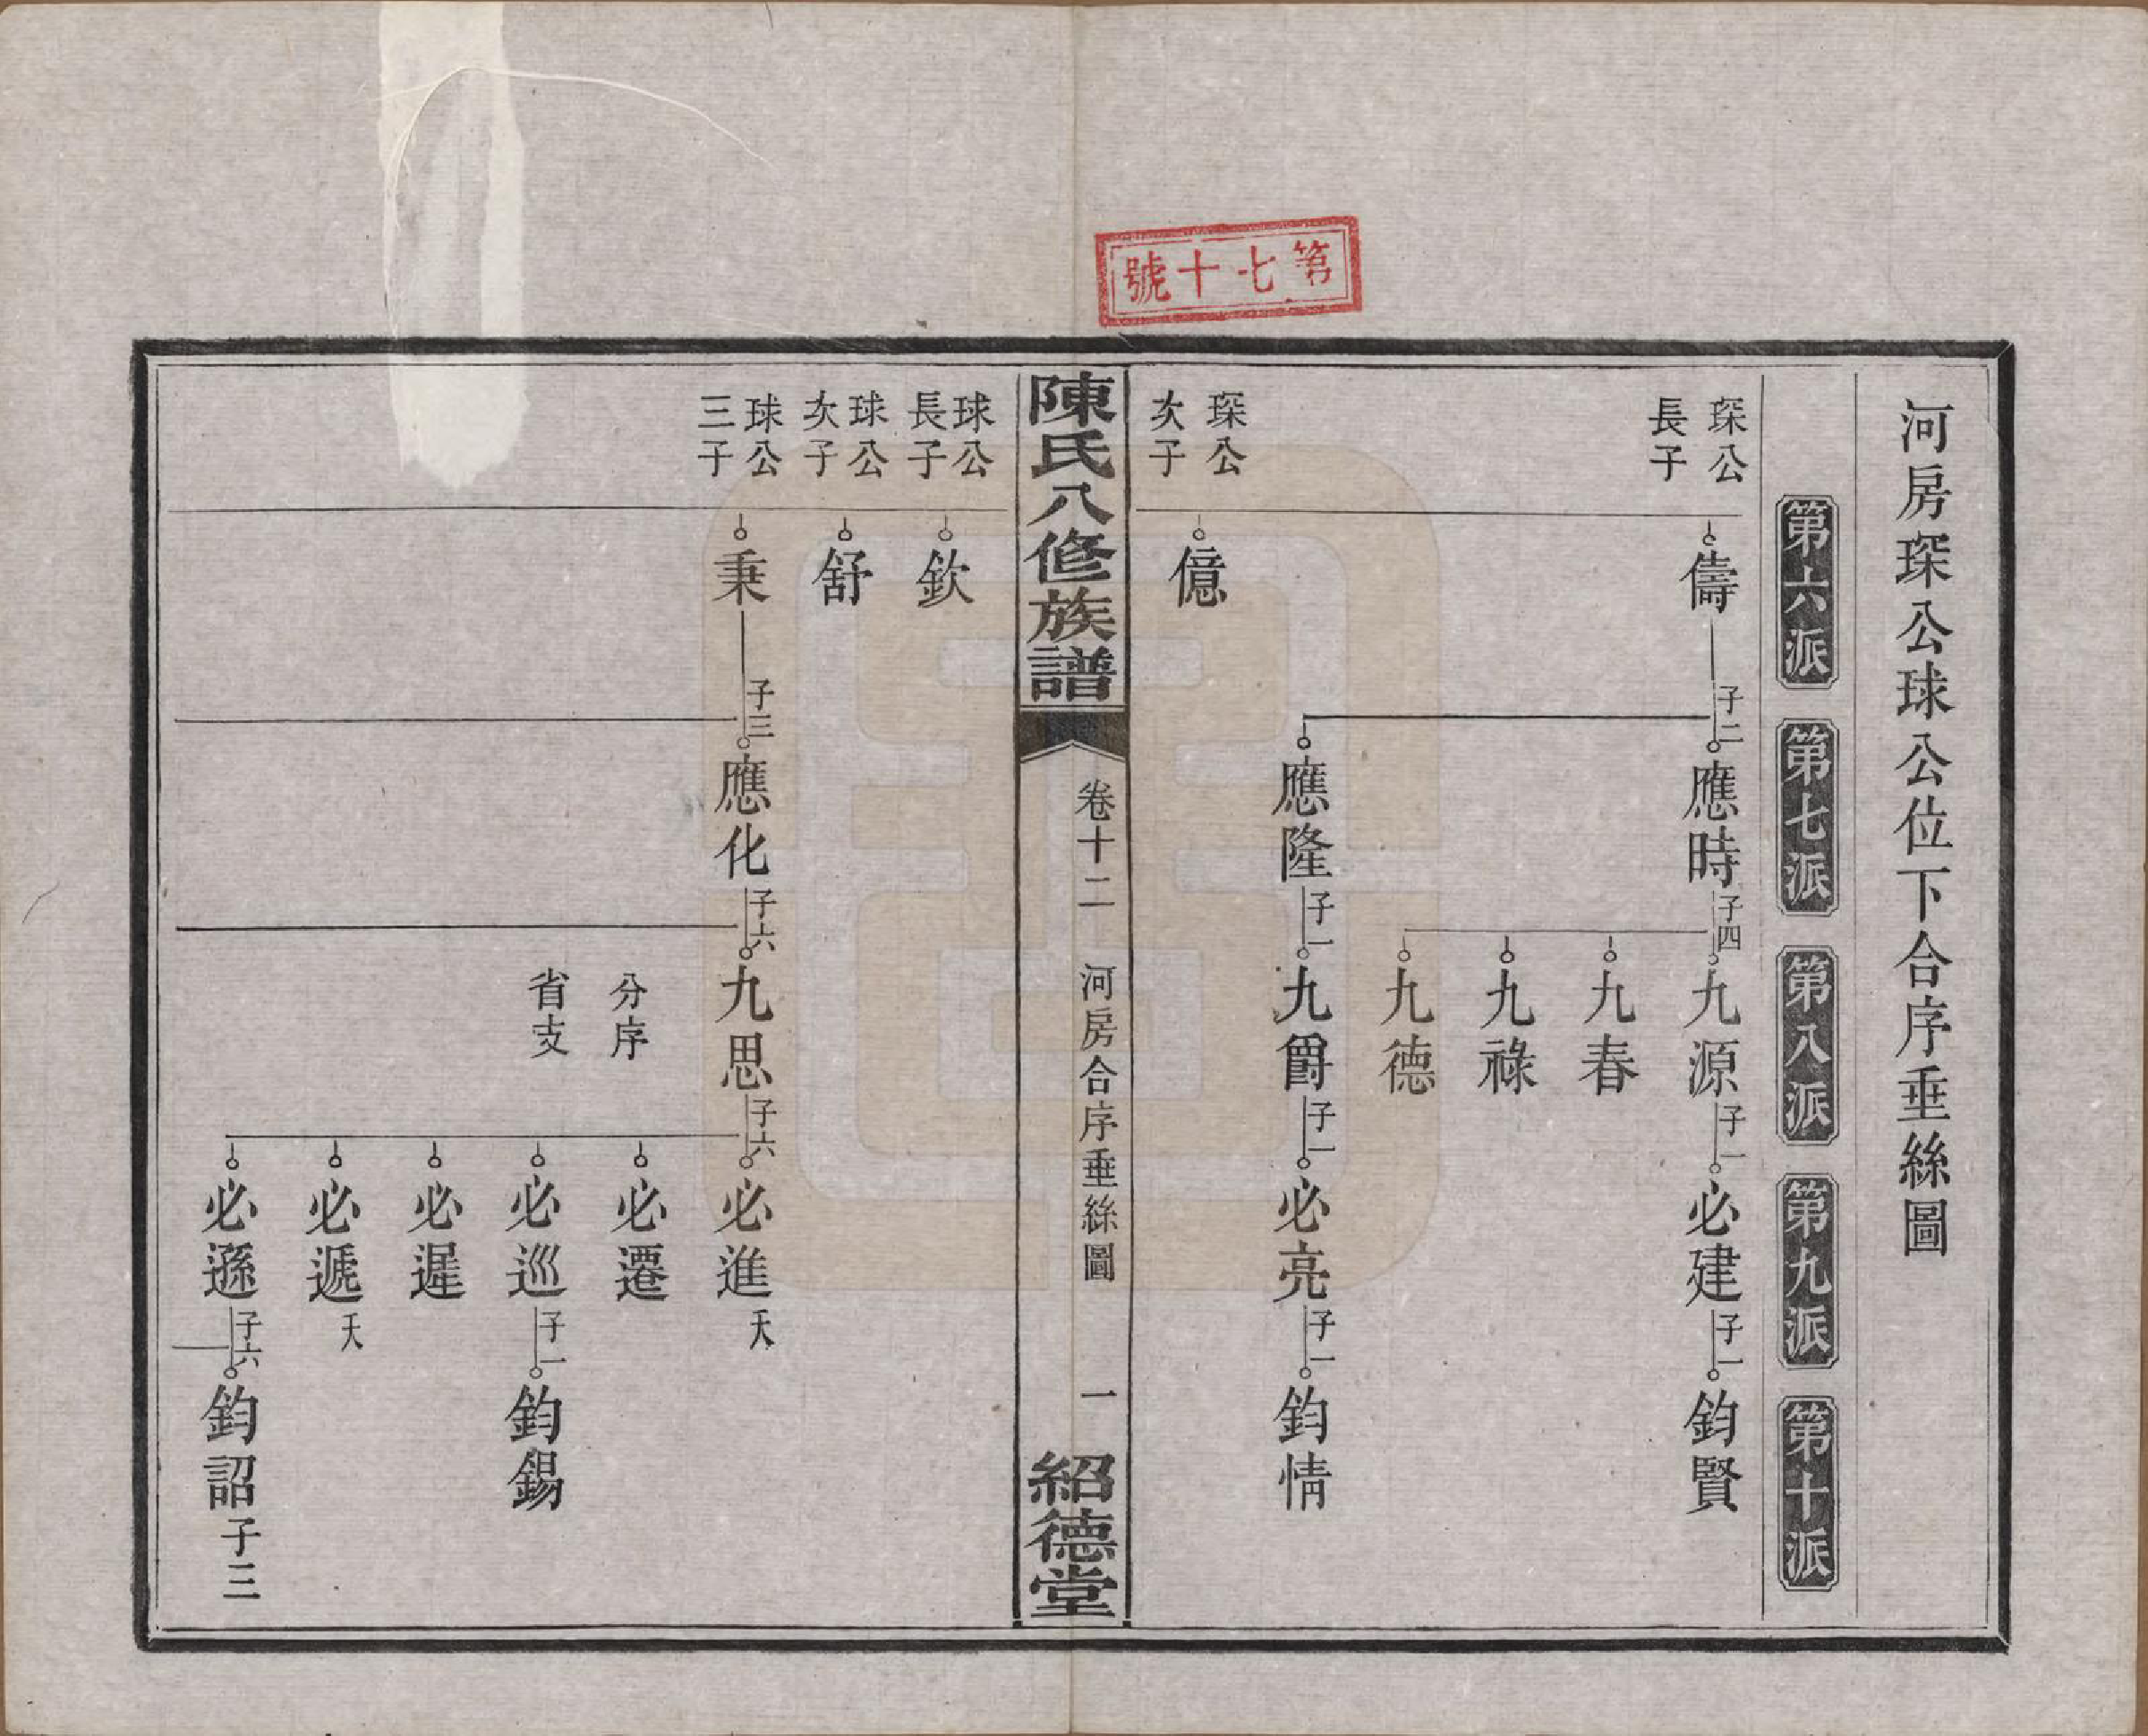 第七十號
河房琛公球公位下合序垂絲圖
第六派
第七派
第八派
第九派
第十派
琛公
長子
儔
子二
應時
子四
九源
子一
必建
子一
鈞賢
九春
九祿
九德
應隆
子一
九爵
子一
必亮
子一
鈞情
琛公
次子
億
陳氏八修族譜
卷十二
河房合序垂絲圖
一
紹德堂
球公
長子
欽
球公
次子
舒
球公
三子
秉
子三
應化
子六
九思
子六
必進
夭
分序
省支
必遷
必巡
子一
鈞錫
必遲
必遞
夭
必遜
子六
鈞詔
子三